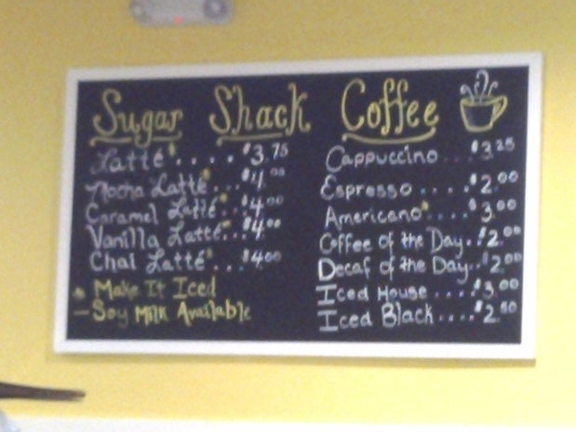 Sugar Shack Coffee
Latte* .... $3.75
Mocha Latte* ... $4.00
Caramel Latte* ... $4.00
Vanilla Latte* ... $4.00
Chai Latte* ... $4.00
* Make It Iced
— Soy Milk Available
Cappuccino ... $3.25
Espresso .... $2.00
Americano* .... $3.00
Coffee of the Day .. $2.00
Decaf of the Day .. $2.00
Iced House .... $3.00
Iced Black .... $2.50